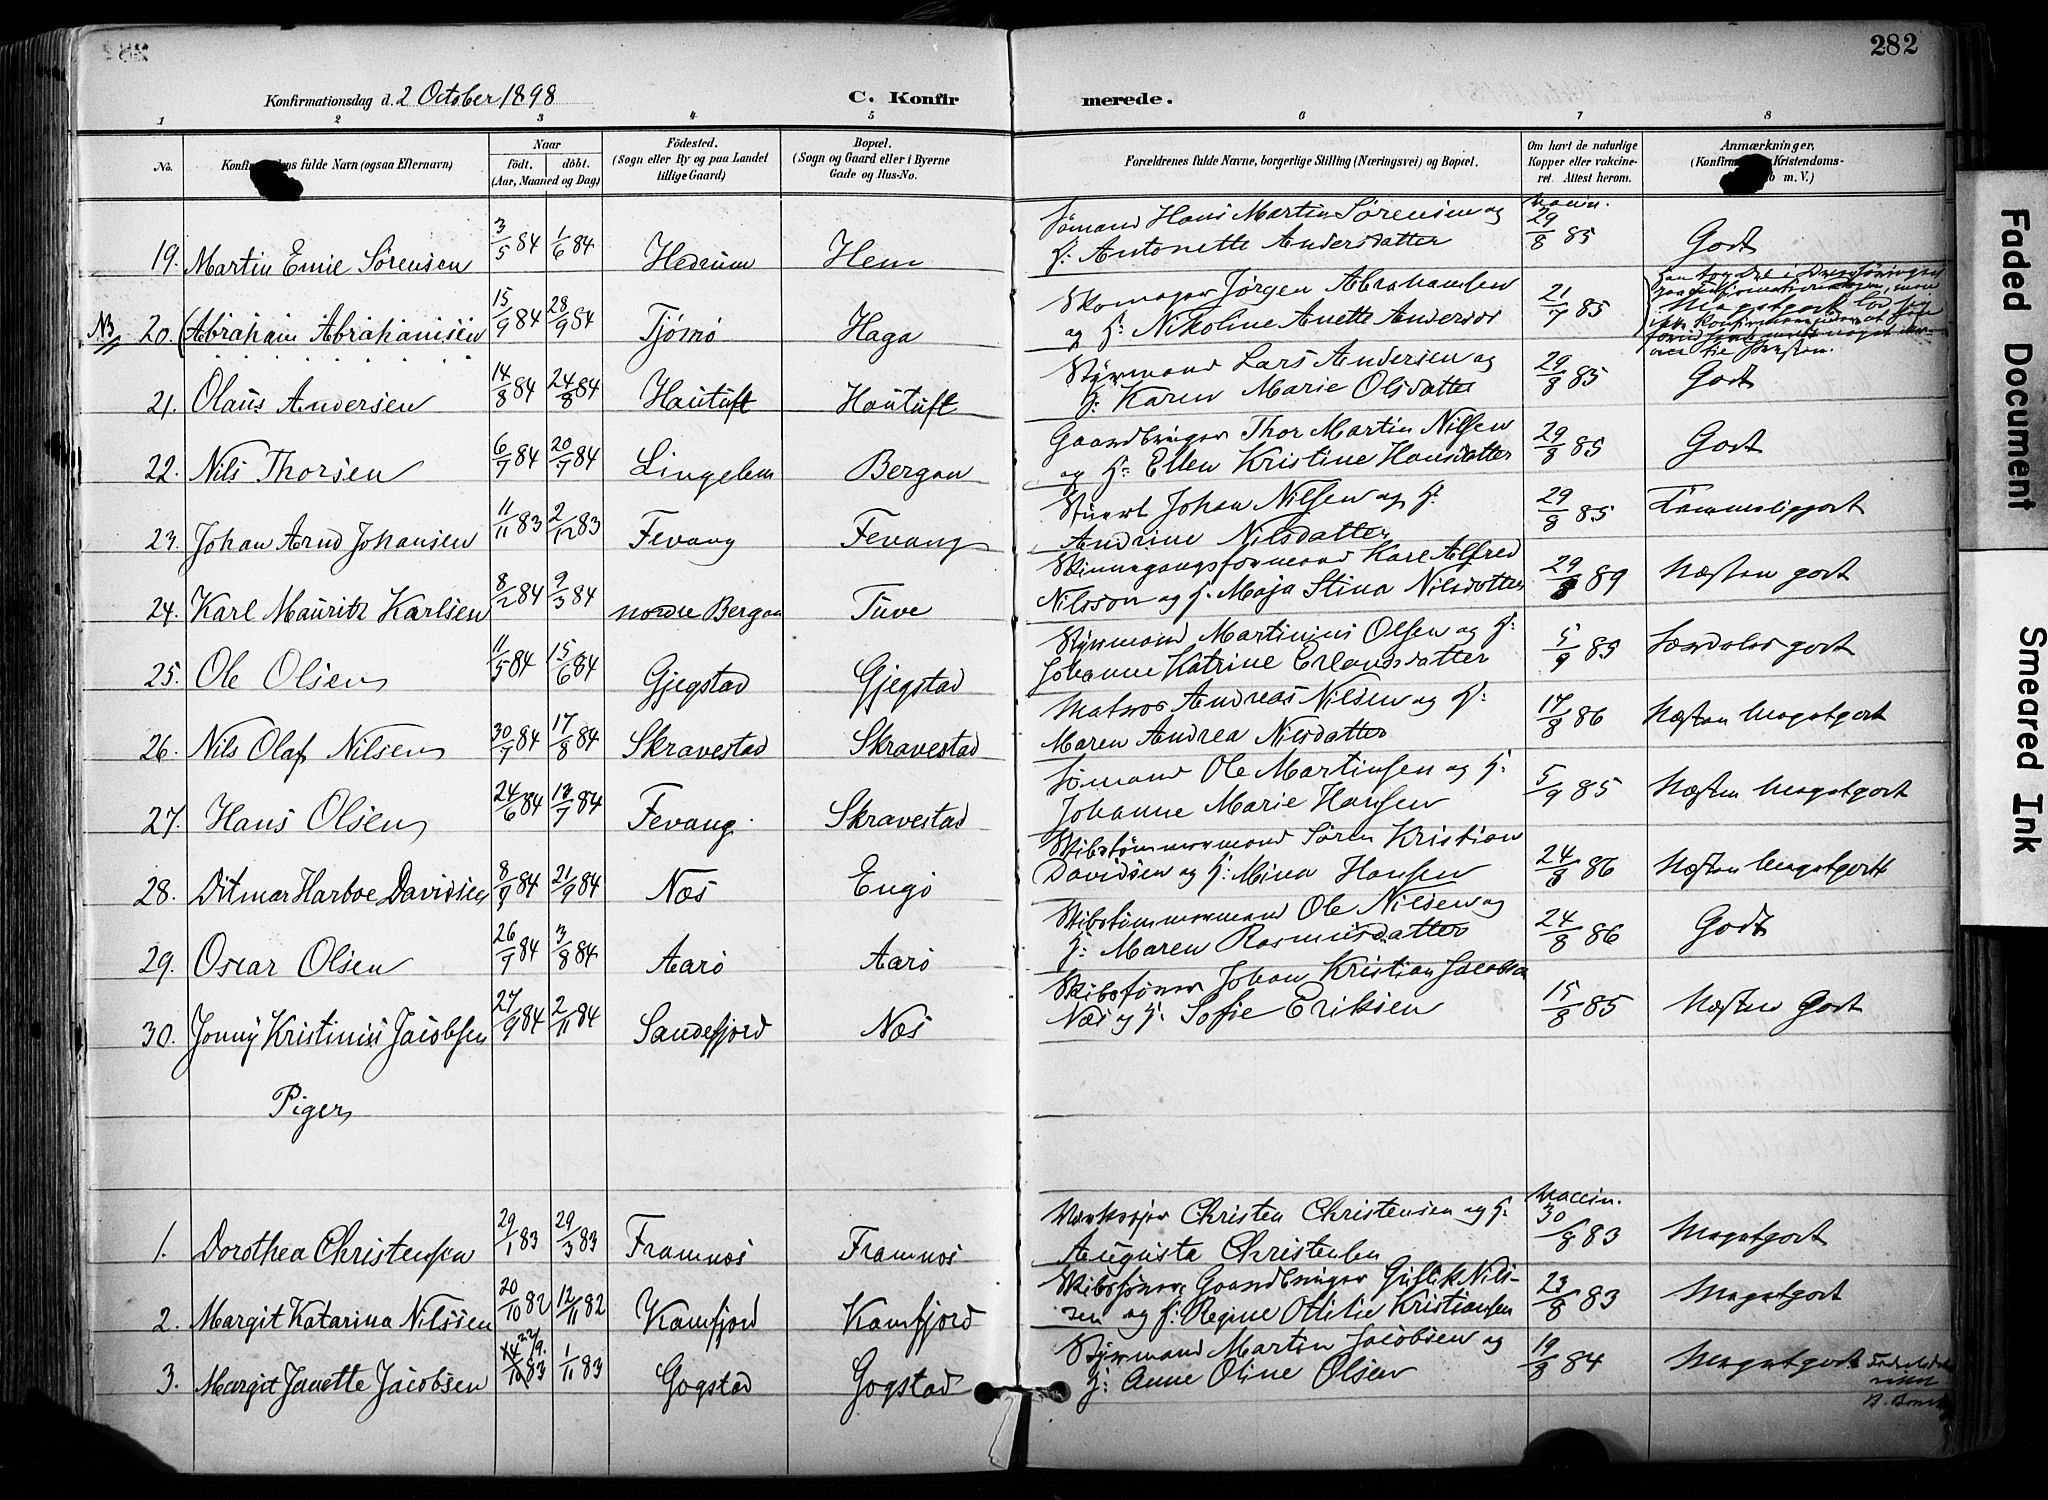 282
Konfirmationsdag d. 2 October 1898
C. Konfirmerede.
1 2 3 4 5 6 7 8
No.
Konfir dens fulde Navn (ogsaa Efternavn)
Naar
födt. döbt.
(Aar, Maaned og Dag)
Födested.
(Sogn eller By og paa Landet
tillige Gaard)
Bopæl.
(Sogn og Gaard eller i Byerne
Gade og Hus-No.
Forældrenes fulde Navne, borgerlige Stilling (Næringsvei) og Bopæl.
Om havt de naturlige
Kopper eller vaccine-
ret. Attest herom.
Anmærkninger.
(Konfirm Kristendoms-
m. V.)
19. Martin Emil Sörensen 3/5 84 1/6 84 Hedrum Hem
Sömand Hans Martin Sörensen og
h: Antonette Andersdatter
Vaccin.
29/8 85 Godt
NB 20. (Abraham Abrahamsen 15/9 84 28/9 84 Tjömö Haga
Skomager Jörgen Abrahamsen
og h: Nikoline Anette Andersdr
21/7 85
21. Olaus Andersen 14/8 84 24/8 84 Hautuft Hautuft
Styrmand Lars Andersen og
h: Karen Marie Olsdatter
29/8 85 Godt
22. Nils Thorsen 6/7 84 20/7 84 Lingelem Bergan
Gaardbruger Thor Martin Nilsen
og h: Ellen Kristine Hansdatter
29/8 85 Godt
23. Johan Arnd Johansen 11/11 83 2/12 83 Fevang Fevang
Stuert Johan Nilsen og h:
Andrine Nilsdatter
29/8 85 Temmeliggodt
24. Karl Mauritz Karlsen 8/2 84 9/3 84 nordre Bergan Tuve
Minnegangsformand Karl Alfred
Nilsson og h. Maja Stina Nilsdotter
29/8 89 Næsten godt
25. Ole Olsen 11/5 84 15/6 84 Gjegstad Gjegstad
Styrmand Martinius Olsen og h:
Johanne Katrine Erlandsdatter
5/9 85 Særdeles godt
26. Nils Olaf Nilsen 30/7 84 17/8 84 Skravestad Skravestad
Matros Andreas Nilsen og h:
Maren Andrea Nilsdatter
17/8 86 Næsten Megetgodt
27. Hans Olsen 24/6 84 13/7 84 Fevang Skravestad
Sömand Ole Martinsen og h:
Johanne Marie Hansen
5/9 85 Næsten Megetgodt
28. Ditmar Harboe Davidsen 8/9 84 21/9 84 Næs Engö
Skibstömmermand Sören Kristian
Davidsen og h: Mina Hansen
24/8 86 Næsten Megetgodt
29. Oscar Olsen 26/7 84 3/8 84 Aarö Aarö
Skibstömmermand Ole Nilsen og
h: Maren Rasmusdatter
24/8 86 Godt
30. Jonny Kristinius Jacobsen 27/9 84 2/11 84 Sandefjord Næs
Skibsförer Johan Kristian Jacobsen
Næs og h: Sofie Eriksen
15/8 85 Næsten Godt
Piger
1. Dorothea Christensen 29/1 83 29/3 83 Framnæs Framnæs
Værkseier Christen Christensen og h:
Augusta Christensen
Vaccin.
30/8 83 Megetgodt
2. Margit Katarina Nilssen 20/10 82 12/11 82 Kamfjord Kamfjord
Skibsförer, Gaardbruger Gullik Nils-
sen og h: Regine Otilie Kristiansen
23/8 83 Megetgodt
3. Margit Janette Jacobsen 14/10 83 22/9. 1/11 83 Gogstad Gogstad
Styrmand Martin Jacobsen og
h: Anne Oline Olsen
19/8 84 Megetgodt
Faded Document
Smeared Ink